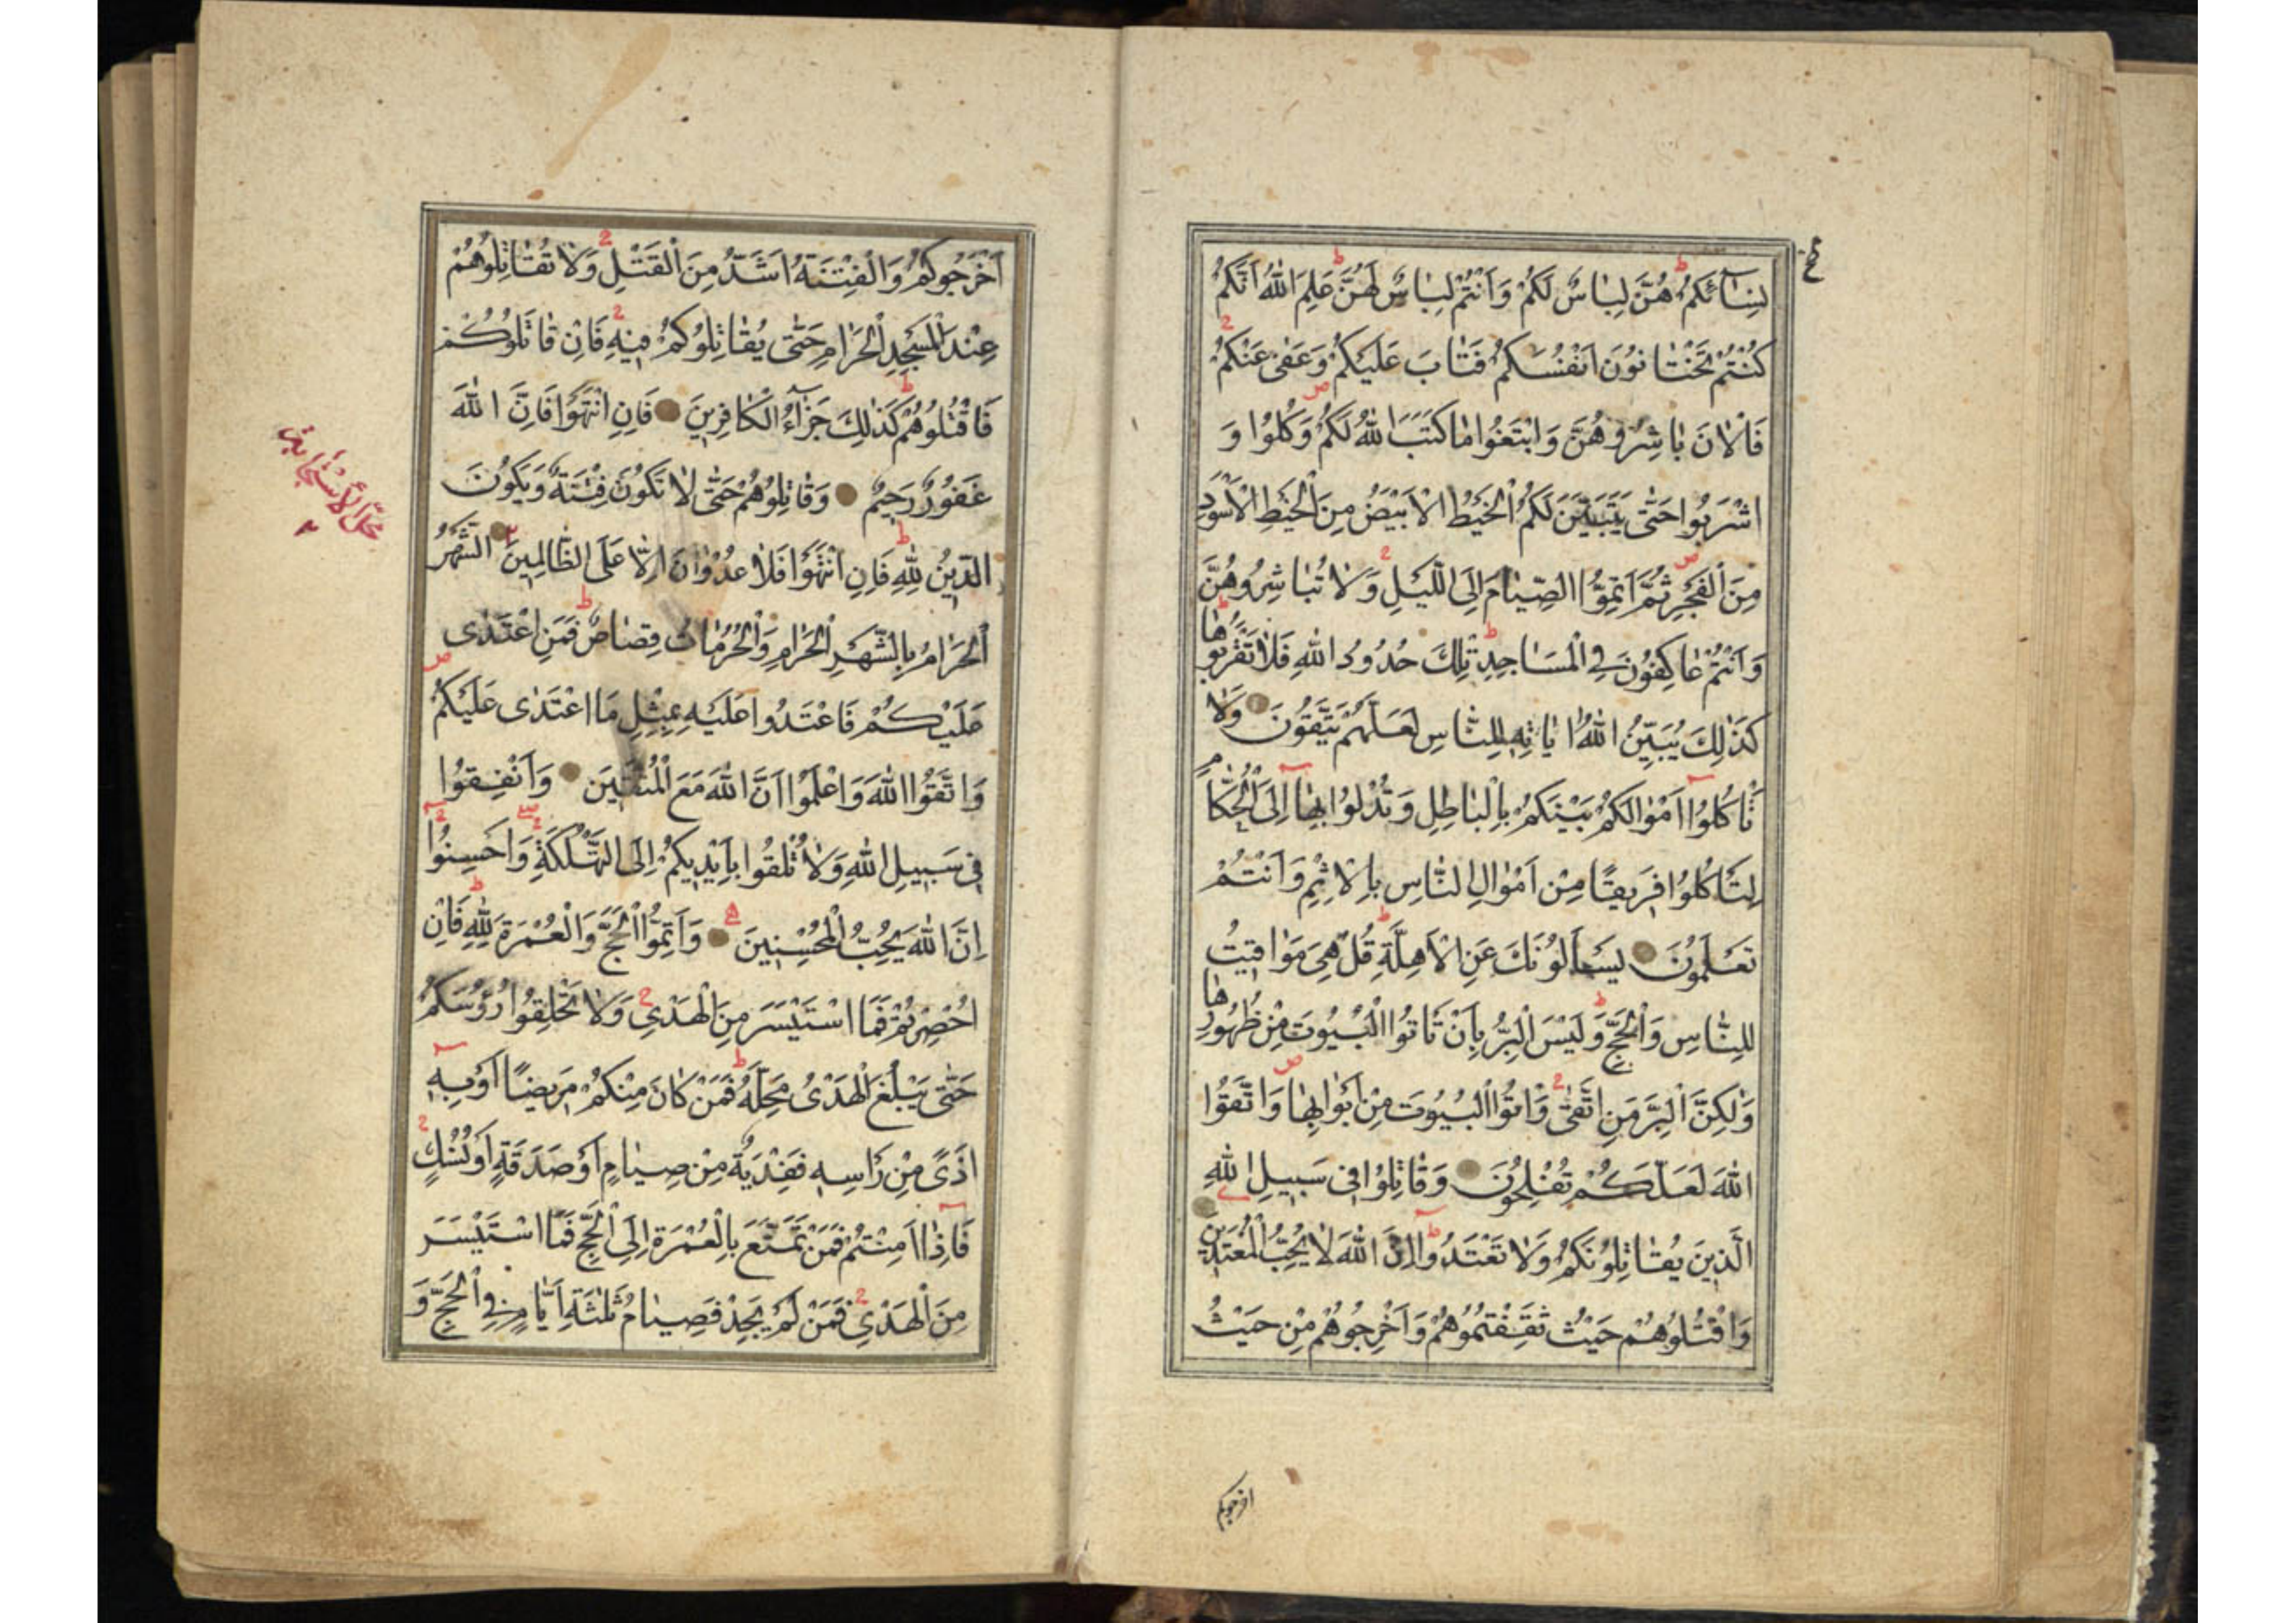 ع
نِسَآئِكُمْ ط هُنَّ لِبَاسٌ لَكُمْ وَاَنْتُمْ لِبَاسٌ لَهُنَّ ط عَلِمَ اللّٰهُ اَنَّكُمْ
كُنْتُمْ تَخْتَانُونَ اَنْفُسَكُمْ فَتَابَ عَلَيْكُمْ وَعَفٰى عَنْكُمْ ج
فَالْاٰنَ بَاشِرُوهُنَّ وَابْتَغُوا مَا كَتَبَ اللّٰهُ لَكُمْ ص وَكُلُوا وَ
اشْرَبُوا حَتّٰى يَتَبَيَّنَ لَكُمُ الْخَيْطُ الْاَبْيَضُ مِنَ الْخَيْطِ الْاَسْوَدِ
مِنَ الْفَجْرِ ص ثُمَّ اَتِمُّوا الصِّيَامَ اِلَى الَّيْلِ ج وَلَا تُبَاشِرُوهُنَّ
وَاَنْتُمْ عَاكِفُونَ فِى الْمَسَاجِدِ ط تِلْكَ حُدُودُ اللّٰهِ فَلَا تَقْرَبُوهَا ط
كَذٰلِكَ يُبَيِّنُ اللّٰهُ اٰيَاتِهٖ لِلنَّاسِ لَعَلَّهُمْ يَتَّقُونَ وَلَا
تَاْكُلُوا اَمْوَالَكُمْ بَيْنَكُمْ بِالْبَاطِلِ وَتُدْلُوا بِهَا اِلَى الْحُكَّامِ
لِتَاْكُلُوا فَرِيقًا مِنْ اَمْوَالِ النَّاسِ بِالْاِثْمِ وَاَنْتُمْ
تَعْلَمُونَ يَسْـَٔلُونَكَ عَنِ الْاَهِلَّةِ ط قُلْ هِىَ مَوَاقِيتُ
لِلنَّاسِ وَالْحَجِّ ط وَلَيْسَ الْبِرُّ بِاَنْ تَاْتُوا الْبُيُوتَ مِنْ ظُهُورِهَا
وَلٰكِنَّ الْبِرَّ مَنِ اتَّقٰى ج وَاْتُوا الْبُيُوتَ مِنْ اَبْوَابِهَا ص وَاتَّقُوا
اللّٰهَ لَعَلَّكُمْ تُفْلِحُونَ وَقَاتِلُوا فِى سَبِيلِ اللّٰهِ
الَّذِينَ يُقَاتِلُونَكُمْ وَلَا تَعْتَدُوا ط اِنَّ اللّٰهَ لَا يُحِبُّ الْمُعْتَدِينَ
وَاقْتُلُوهُمْ حَيْثُ ثَقِفْتُمُوهُمْ وَاَخْرِجُوهُمْ مِنْ حَيْثُ
اخرجوكم
اَخْرَجُوكُمْ وَالْفِتْنَةُ اَشَدُّ مِنَ الْقَتْلِ ج وَلَا تُقَاتِلُوهُمْ
عِنْدَ الْمَسْجِدِ الْحَرَامِ حَتّٰى يُقَاتِلُوكُمْ فِيهِ ج فَاِنْ قَاتَلُوكُمْ
فَاقْتُلُوهُمْ ط كَذٰلِكَ جَزَآءُ الْكَافِرِينَ فَاِنِ انْتَهَوْا فَاِنَّ اللّٰهَ
غَفُورٌ رَحِيمٌ وَقَاتِلُوهُمْ حَتّٰى لَا تَكُونَ فِتْنَةٌ وَيَكُونَ
الدِّينُ لِلّٰهِ ط فَاِنِ انْتَهَوْا فَلَا عُدْوَانَ اِلَّا عَلَى الظَّالِمِينَ اَلشَّهْرُ
الْحَرَامُ بِالشَّهْرِ الْحَرَامِ وَالْحُرُمَاتُ قِصَاصٌ ط فَمَنِ اعْتَدٰى
عَلَيْكُمْ فَاعْتَدُوا عَلَيْهِ بِمِثْلِ مَا اعْتَدٰى عَلَيْكُمْ ص
وَاتَّقُوا اللّٰهَ وَاعْلَمُوا اَنَّ اللّٰهَ مَعَ الْمُتَّقِينَ وَاَنْفِقُوا
فِى سَبِيلِ اللّٰهِ وَلَا تُلْقُوا بِاَيْدِيكُمْ اِلَى التَّهْلُكَةِ وَاَحْسِنُوا
اِنَّ اللّٰهَ يُحِبُّ الْمُحْسِنِينَ وَاَتِمُّوا الْحَجَّ وَالْعُمْرَةَ لِلّٰهِ ط فَاِنْ
اُحْصِرْتُمْ فَمَا اسْتَيْسَرَ مِنَ الْهَدْىِ ج وَلَا تَحْلِقُوا رُؤُسَكُمْ
حَتّٰى يَبْلُغَ الْهَدْىُ مَحِلَّهُ ط فَمَنْ كَانَ مِنْكُمْ مَرِيضًا اَوْ بِهٖ
اَذًى مِنْ رَاْسِهٖ فَفِدْيَةٌ مِنْ صِيَامٍ اَوْ صَدَقَةٍ اَوْ نُسُكٍ ج
فَاِذَا اَمِنْتُمْ فَمَنْ تَمَتَّعَ بِالْعُمْرَةِ اِلَى الْحَجِّ فَمَا اسْتَيْسَرَ
مِنَ الْهَدْىِ ج فَمَنْ لَمْ يَجِدْ فَصِيَامُ ثَلٰثَةِ اَيَّامٍ فِى الْحَجِّ وَ